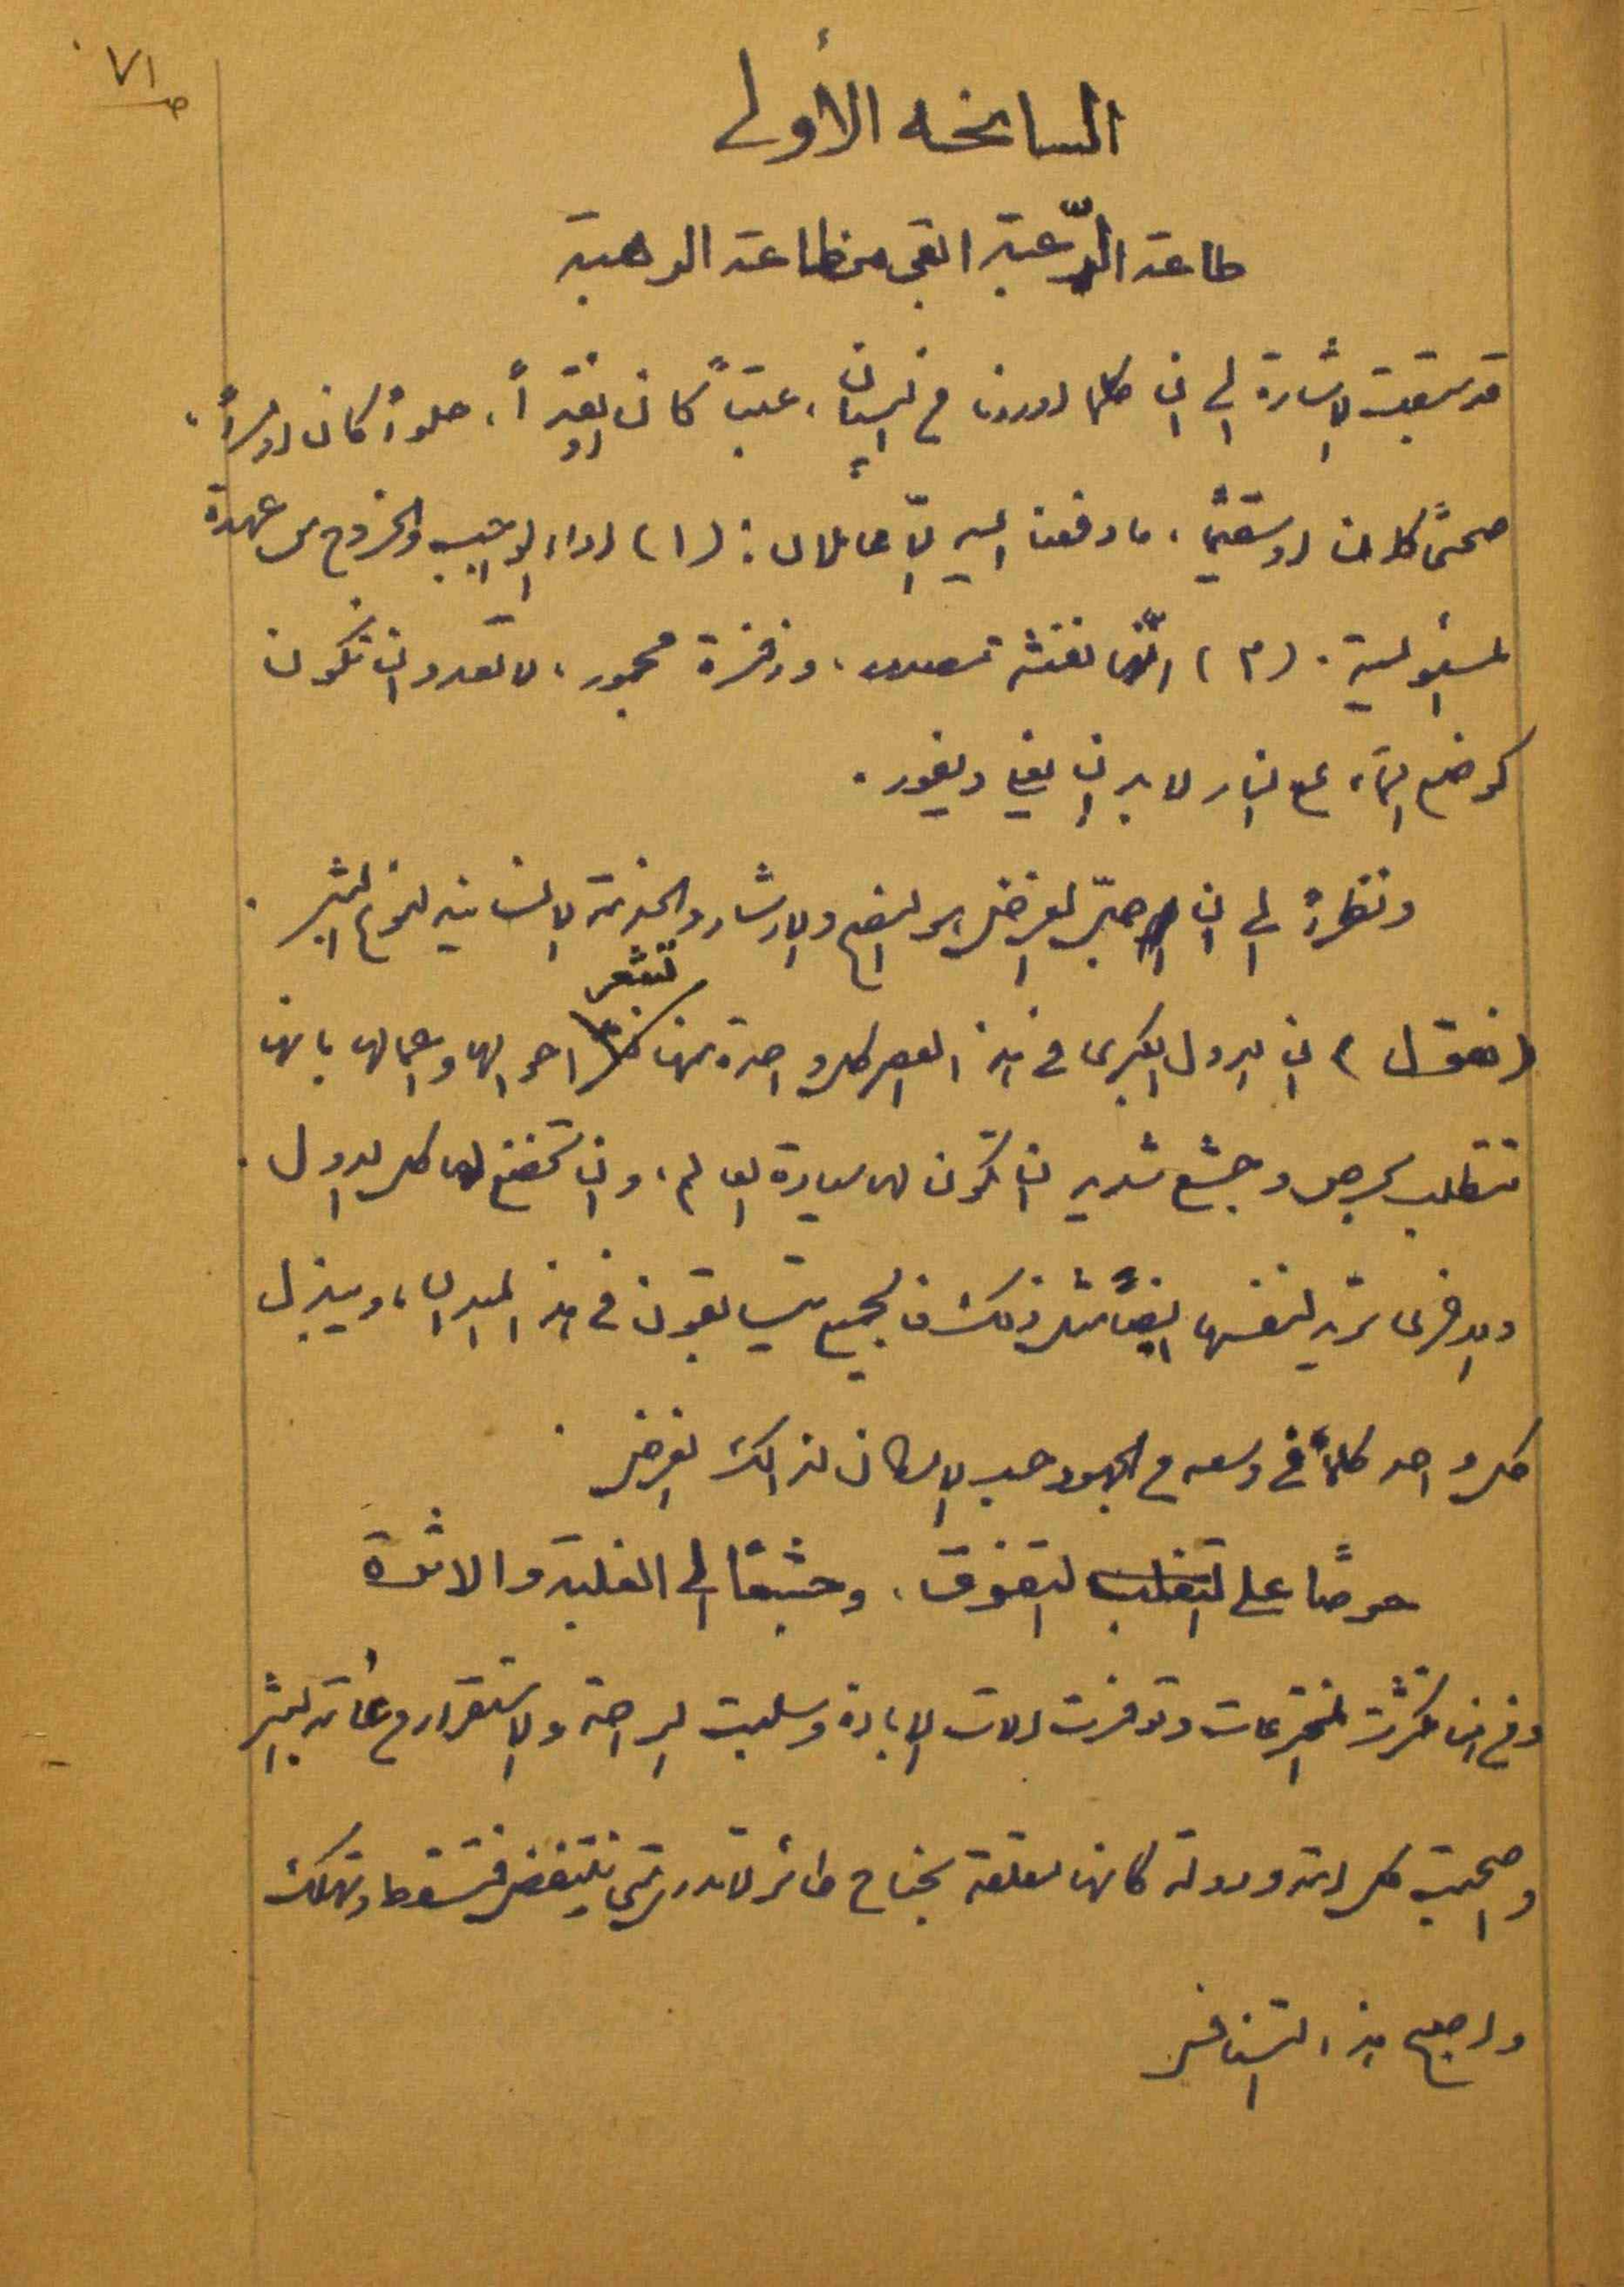 ص ٧١
السانحه الأولى
طاعة الرّغبة ابقى من طاعة الرهبة
قد سبقت الاشارة الى ان كلما اوردنا في البيان، عتباً كان او نقداً، حلواً كان او مراً،
صحيحاً كان او سقيماً، ما دفعنا اليه الّا عاملان: (١) اداء الواجب والخروج من عهدة
المسئولية. (٢) انّها نفثة مصدور، وزفرة محجور، لا تعدو ان تكون
كوضع الماء على النار لا بد ان يغلي ويفور.
ونظراً الى ان الغرض هو النصح والارشاد والخدمة الانسانية لنوع البشر.
(فنقول) ان الدول الكبرى في هذا العصر كل واحدة منها تشعر احوالها واعمالها بانها
تتطلب بحرص وجشع شديد ان تكون لها سيادة العالم، وان تخضع لها كل الدول.
والاخرى تريد لنفسها ايضاً مثل ذلك فالجميع يتسابقون في هذا الميدان، ويبذل
كل واحد كلما في وسعه من الجهود حسب الامكان لذالك الغرض.
حرصاً على التغلب التفوق، وجشعاً الى الغلبة والاثرة
ومن هنا كثرت المخترعات وتوفرت الات الابادة وسلبت الراحة والاستقرار من عامة البشر
واصبحت كل امة ودولة كانها معلقة بجناح طائر لا تدري متى ينتفض فتسقط وتهلك
واصبح هذا التنافس